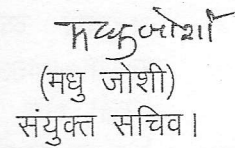 मधु जोशी
(मधु जोशी)
संयुक्त सचिव।